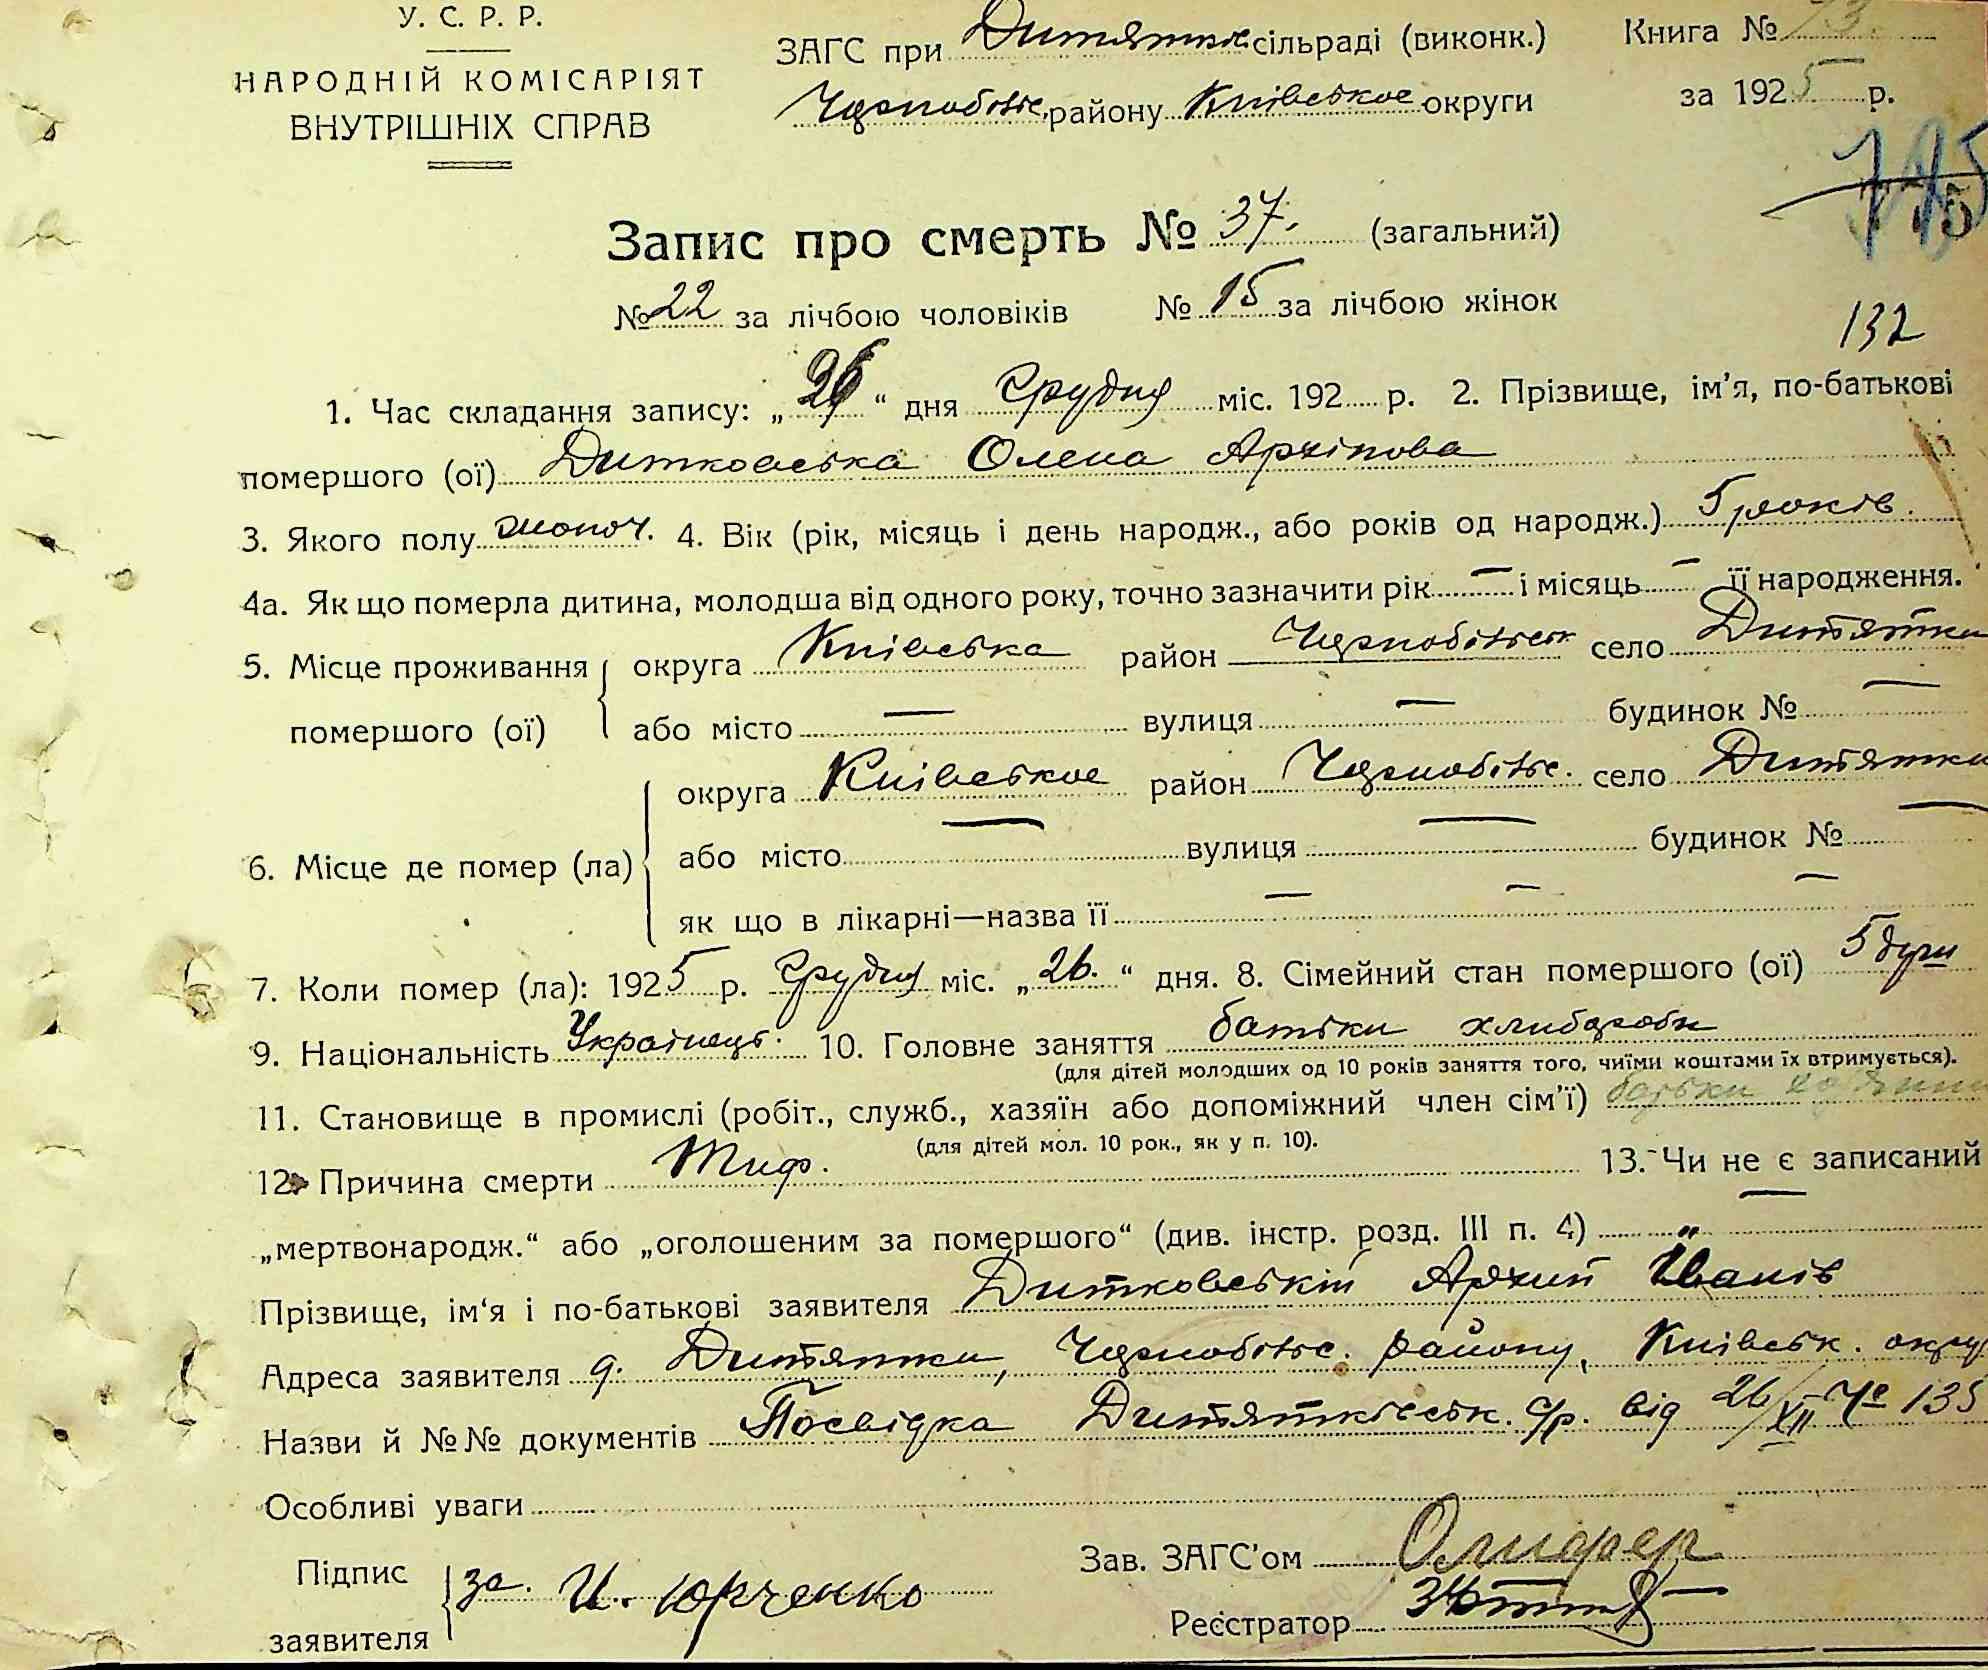 У. С. Р. Р.
НАРОДНІЙ КОМІСАРІЯТ
ВНУТРІШНІХ СПРАВ
ЗАГС при Дитятків. сільраді (виконк.)
Чорнобільс. району Київської округи
Книга № 73
за 1925 р.
Запис про смерть № 37. (загальний)
№ 22 за лічбою чоловіків № 15 за лічбою жінок
132
1. Час складання запису: „26“ дня Грудня міс. 192 р. 2. Прізвище, ім'я, по-батькові
помершого (ої) Дитковська Олена Архіпова
3. Якого полу жоноч. 4. Вік (рік, місяць і день народж., або років од народж.) 5 років.
4а. Як що померла дитина, молодша від одного року, точно зазначити рік — і місяць — її народження.
5. Місце проживання помершого (ої) округа Київська район Чорнобільськ село Дитятки
або місто — вулиця — будинок № —
6. Місце де помер (ла) округа Київськоє район Чорнобільс. село Дитятки
або місто — вулиця — будинок № —
як що в лікарні—назва її — — —
7. Коли помер (ла): 1925 р. Грудня міс. „26.“ дня. 8. Сімейний стан помершого (ої) 5 душ
9. Національність Українець. 10. Головне заняття батьки хлибороби
(для дітей молодших од 10 років заняття того, чиїми коштами їх втримується).
11. Становище в промислі (робіт., служб., хазяїн або допоміжний член сім'ї) батьки
(для дітей мол. 10 рок., як у п. 10).
12. Причина смерти Тиф. 13. Чи не є записаний
„мертвонародж.“ або „оголошеним за помершого“ (див. інстр. розд. III п. 4) — „
Прізвище, ім'я і по-батькові заявителя Дитковській Архип Іванів
Адреса заявителя д. Дитятки, Чорнобільс. району, Київськ. округ
Назви й №№ документів Посвідка Дитятківськ. с/р. від 26/XII Че 135
Особливі уваги
Підпис заявителя за. И. Юрченко
Зав. ЗАГС'ом Олифер
Реєстратор